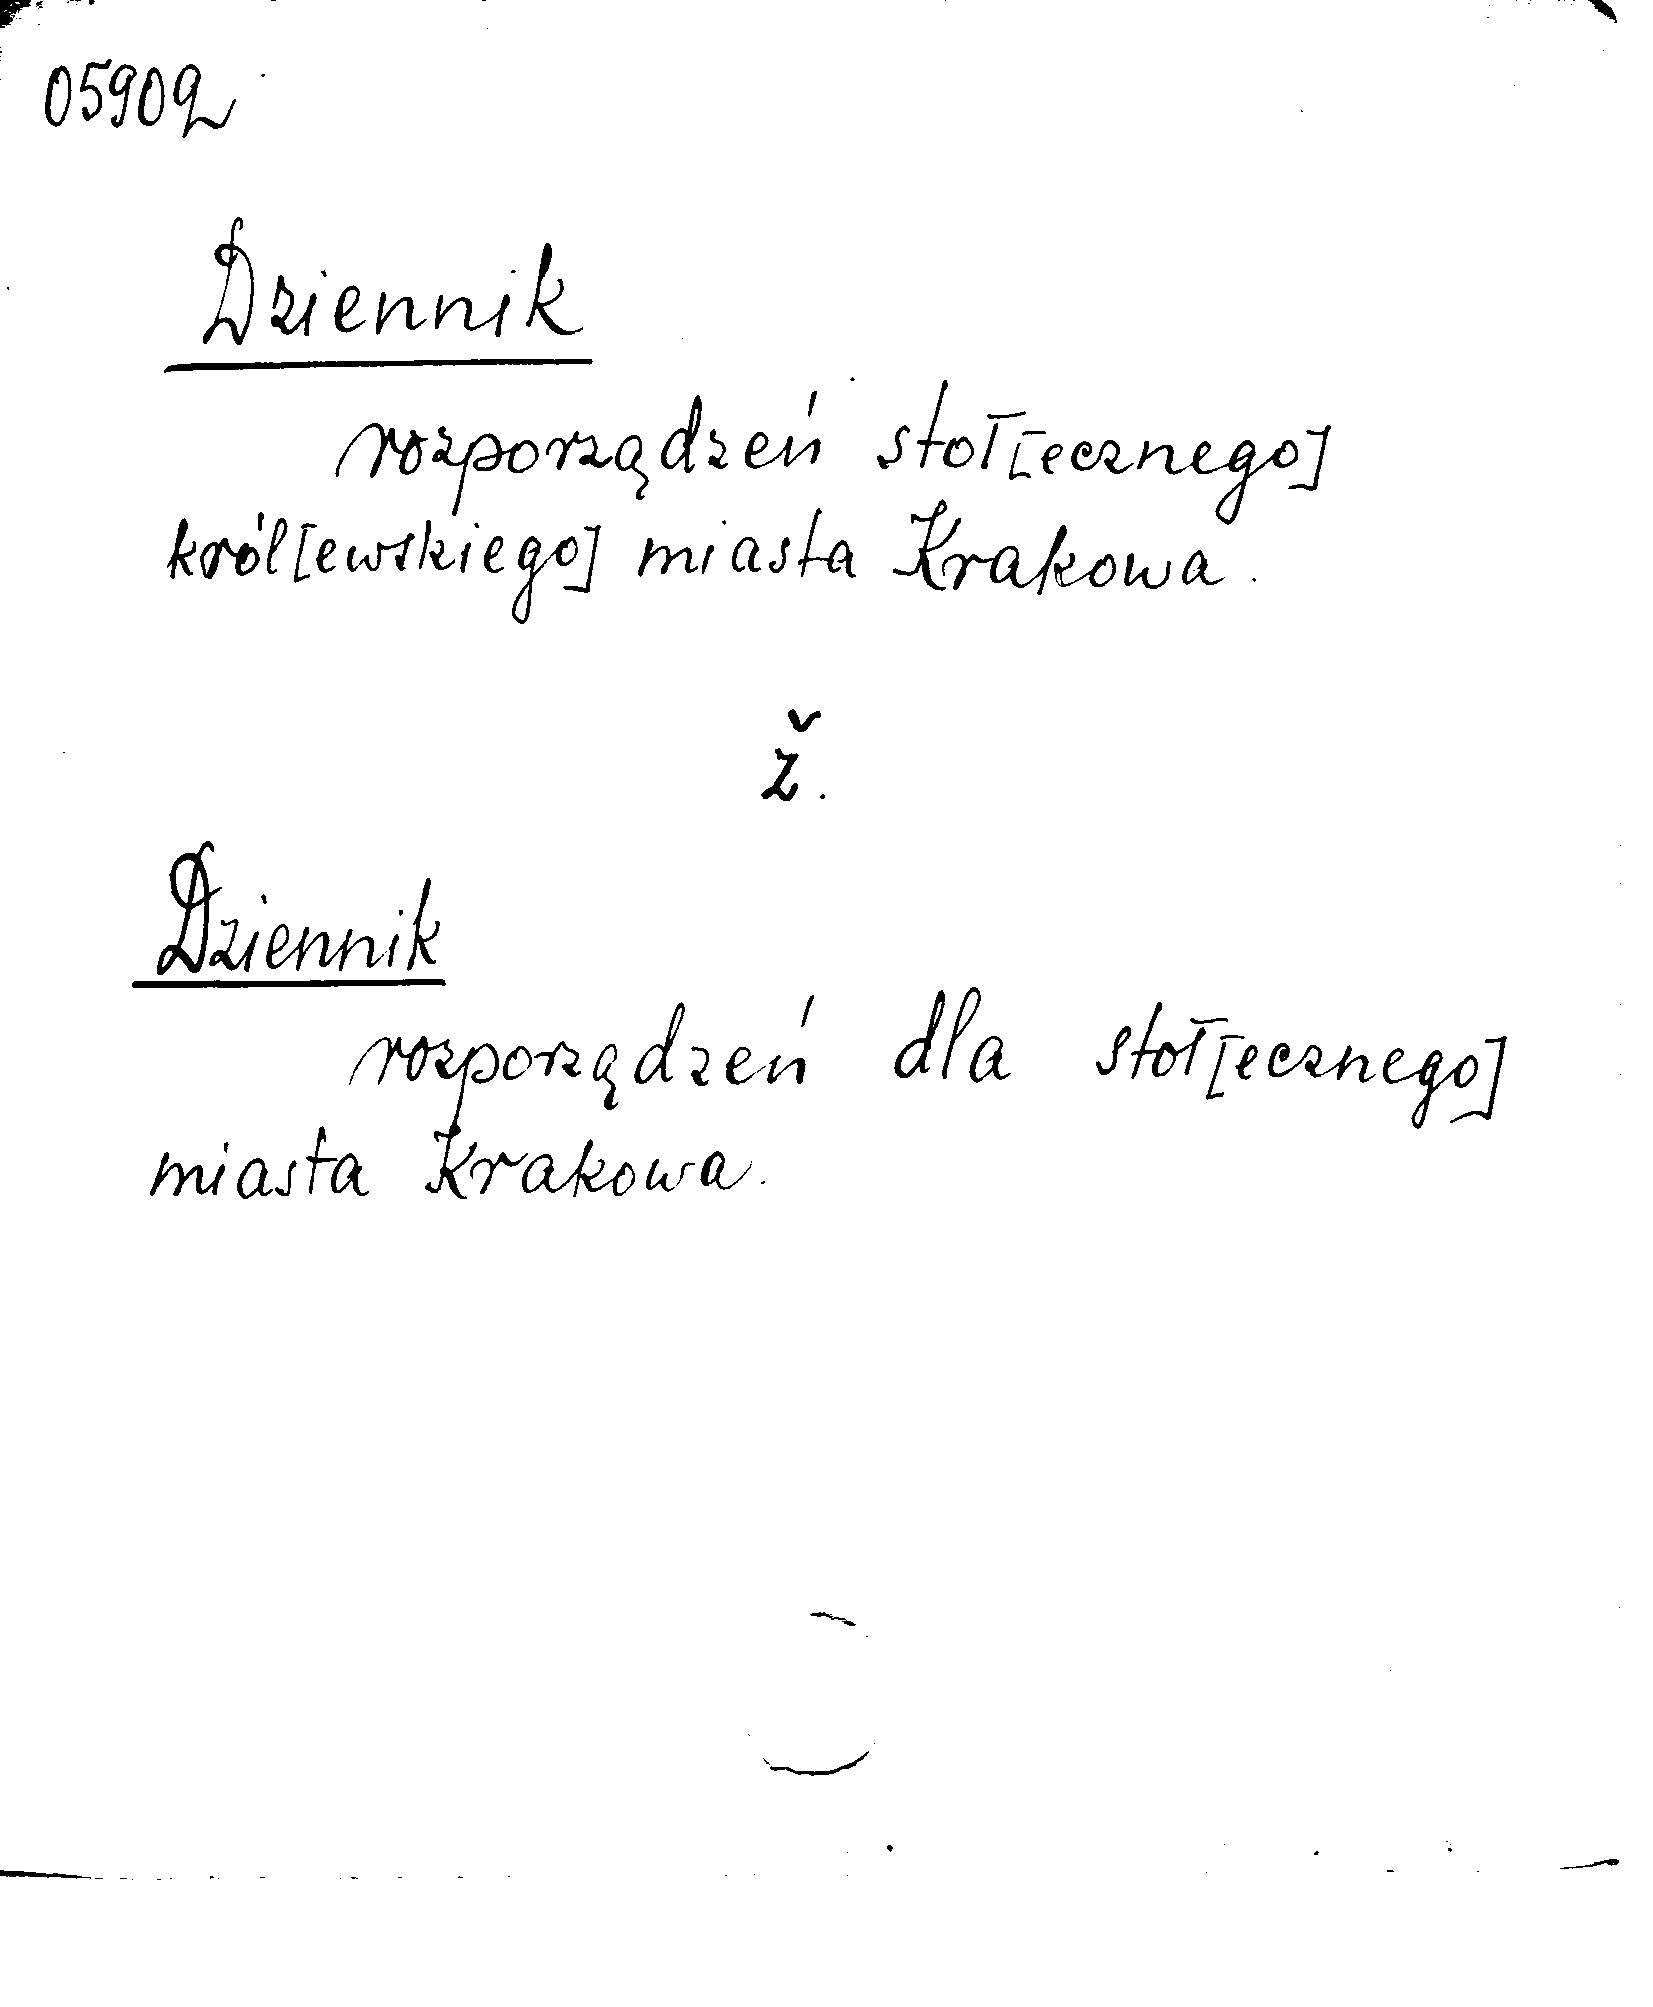 05902
Dziennik
rozporządzeń stoł[ecznego]
król[ewskiego] miasta Krakowa.
ž.
Dziennik
rozporządzeń dla stoł[ecznego]
miasta Krakowa.